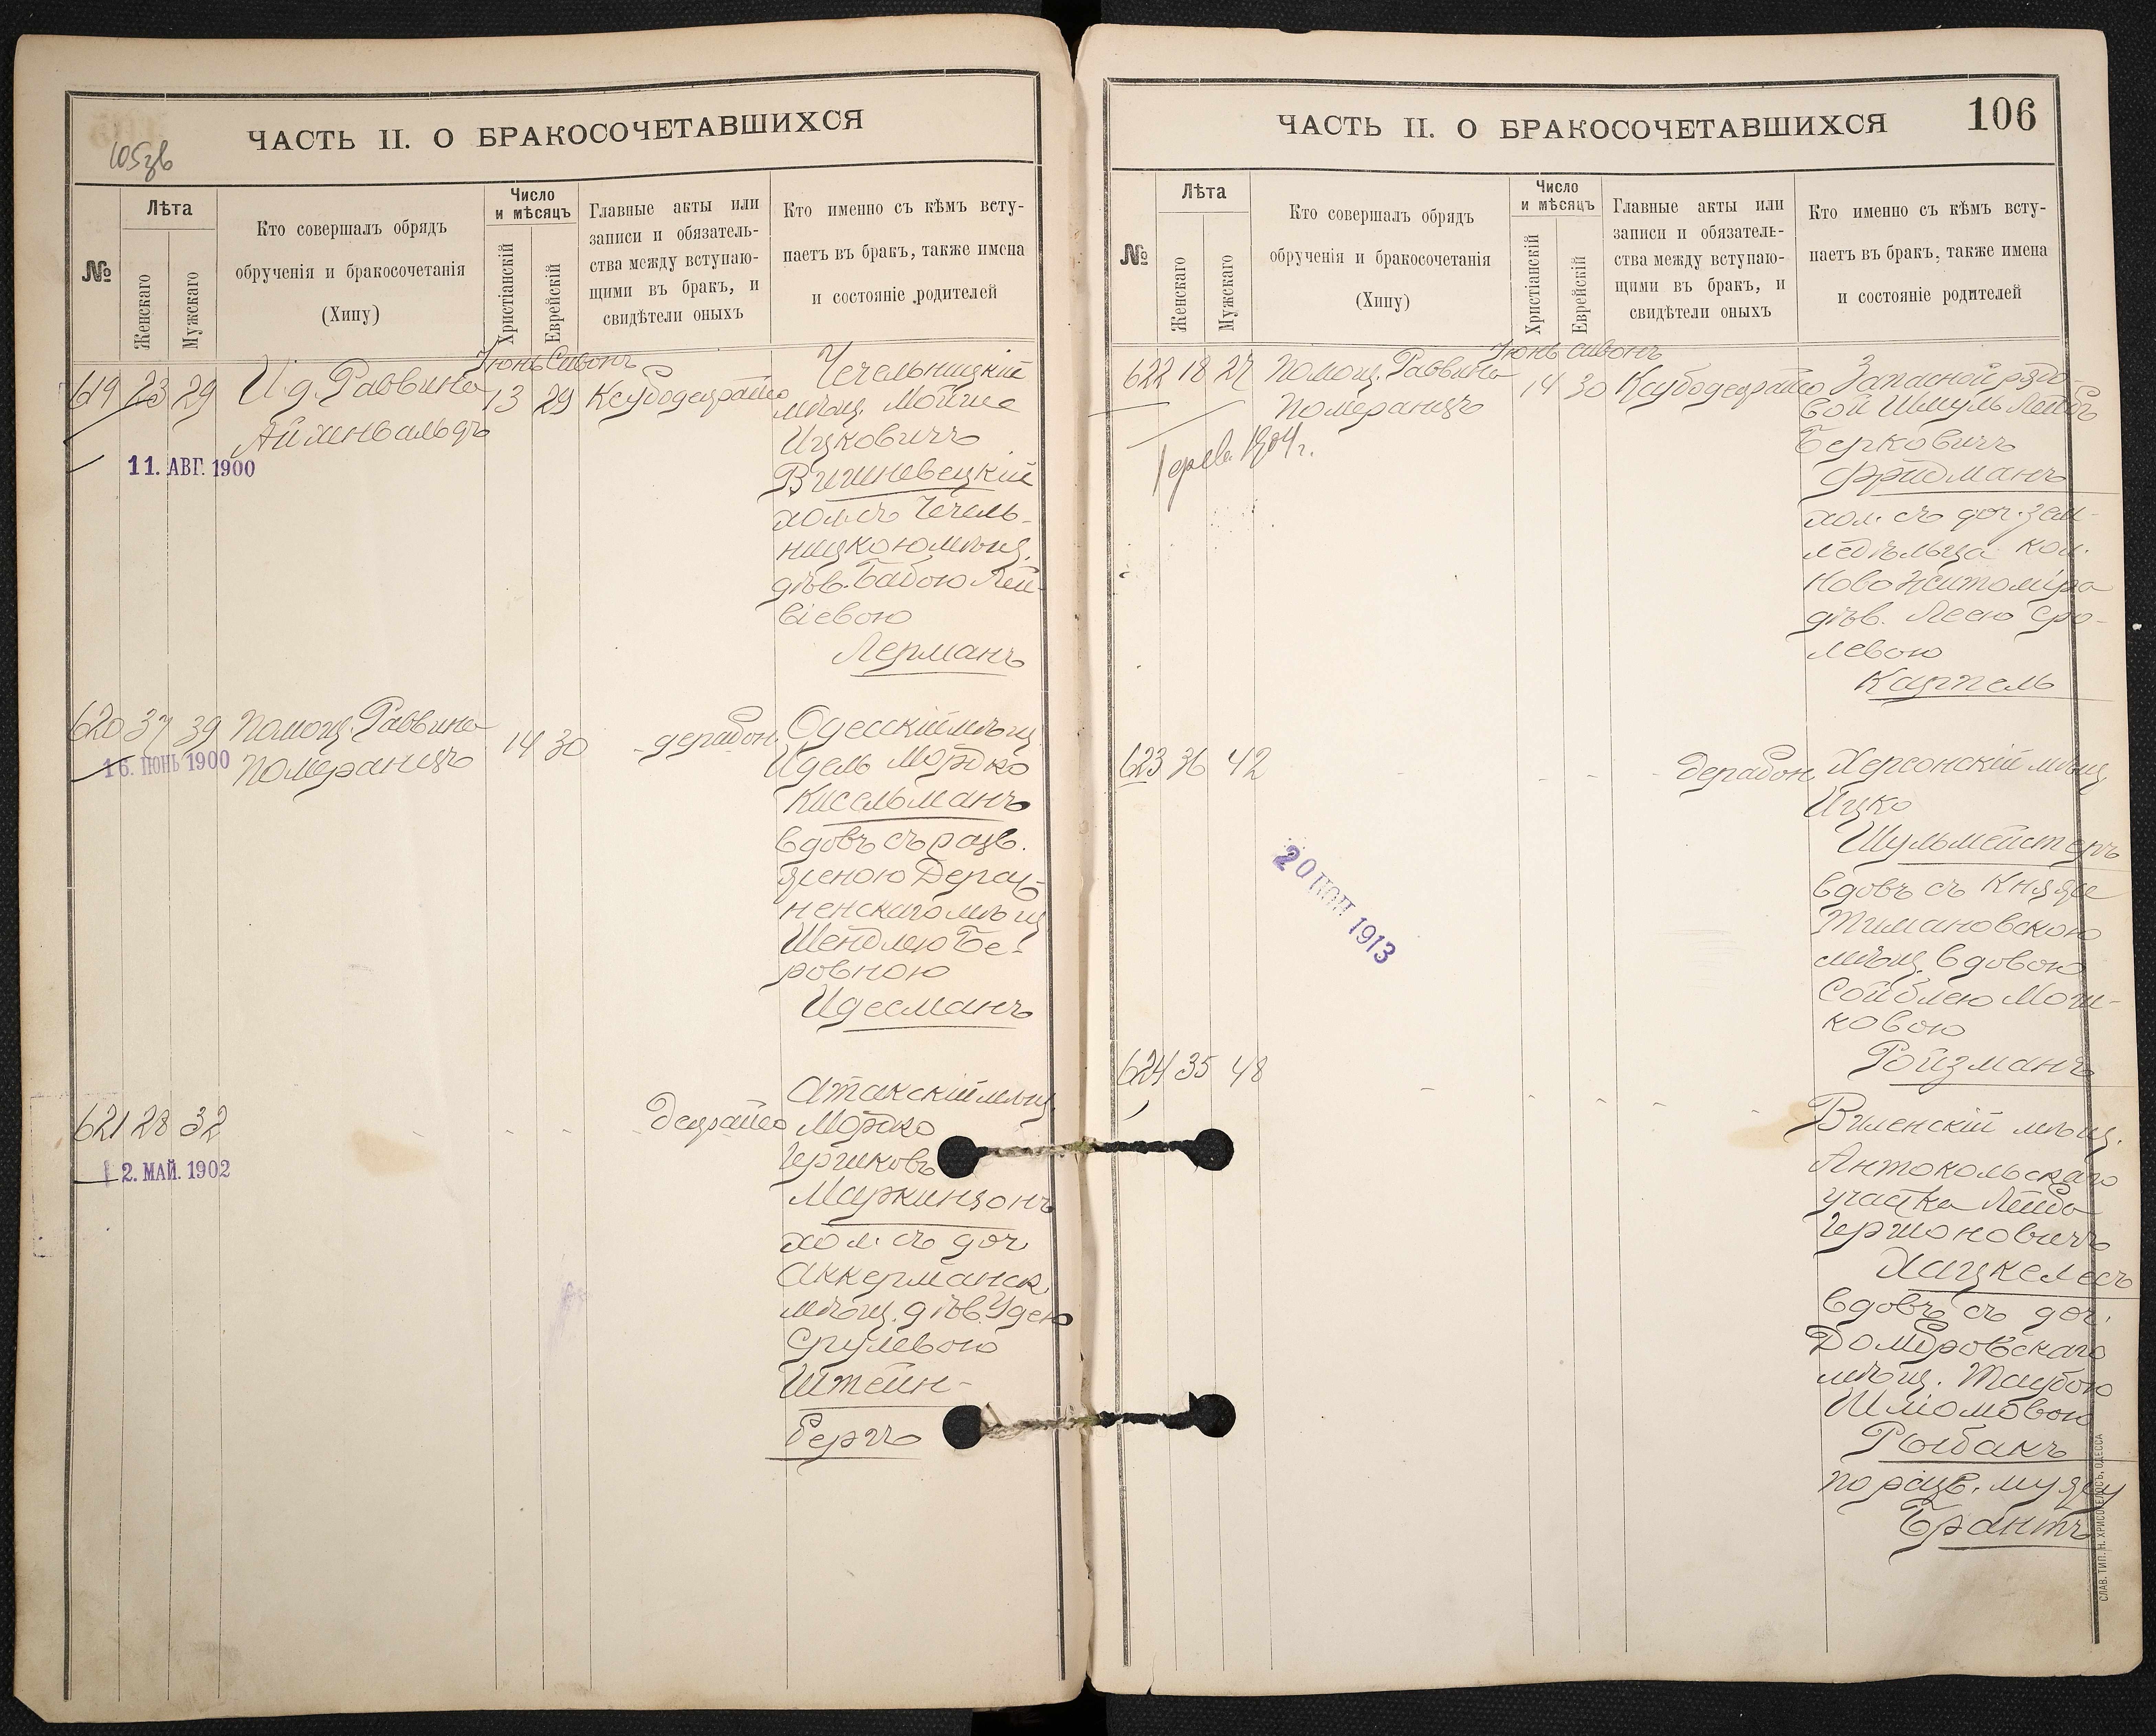 ЧАСТЬ II. О БРАКОСОЧЕТАВШИХСЯ
105зв
№
Лѣта
Женскаго
Мужскаго
Кто совершалъ обрядъ
обрученія и бракосочетанія
(Хипу)
Число
и мѣсяцъ
Христіанскій
Еврейскій
Главные акты или
записи и обязатель-
ства между вступаю-
щими въ бракъ, и
свидѣтели оныхъ
Кто именно съ кѣмъ всту-
паетъ въ бракъ, также имена
и состояніе родителей
Іюнь Сивонъ
619 23 29 И.д. Раввина 13 29 Ксубодецрайсо
Айзенвальдъ
11. АВГ. 1900
Чечельницкій
мѣщ. Мойше
Ицковичъ
Вишневецкій
хол. съ Чечель-
ницкою мѣщ.
дѣв. Бабою Лей-
віевою
Лерманъ
620 37 39 Помощ. Раввина 14 30 - дерабон.
Померанцъ
16. ІЮНЬ 1900
Одесскій мѣщ.
Идель Мордко
Кисельманъ
вдовъ съ разв.
женою Дераж-
ненскаго мѣщ.
Шендлею Бе-
ровною
Идесманъ
621 28 32 - - - - Децрайсо
12. МАЙ. 1902
Атакскій мѣщ.
Мордко
Гершковъ
Маркинзонъ
хол. съ доч.
Аккерманск.
мѣщ. дѣв. Удею
Срулевою
Штейн-
бергъ
ЧАСТЬ II. О БРАКОСОЧЕТАВШИХСЯ
106
№
Лѣта
Женскаго
Мужскаго
Кто совершалъ обрядъ
обрученія и бракосочетанія
(Хипу)
Число
и мѣсяцъ
Христіанскій
Еврейскій
Главные акты или
записи и обязатель-
ства между вступаю-
щими въ бракъ, и
свидѣтели оныхъ
Кто именно съ кѣмъ всту-
паетъ въ бракъ, также имена
и состояніе родителей
Іюнь Сивонъ
622 18 27 Помощ. Раввина 14 30 Ксубодецрайсо
Померанцъ
1 февр. 1904 г.
Запасной рядо-
вой Шмуль Лейбъ
Берковичъ
Фридманъ
хол. съ доч. зем-
ледѣльца кол.
Ново Житоміра
дѣв. Леею Сро-
левою
Карпель
623 36 42 - - - дерабон.
20 1913
Херсонскій мѣщ.
Ицко
Шульмейстеръ
вдовъ съ Княже
Тимановскою
мѣщ. вдовою
Сойблею Мош-
ковою
Ройзманъ
624 35 48 - - - - -
Виленскій мѣщ.
Антокольскаго
участка Лейба
Гершоновичъ
Хацкелесъ
вдовъ съ доч.
Домбровскаго
мѣщ. Таубою
Шліомовою
Рыбакъ
по разв. мужу
Брантъ
СЛАВ. ТИП. Н. ХРИСОГЕЛОСЪ, ОДЕССА